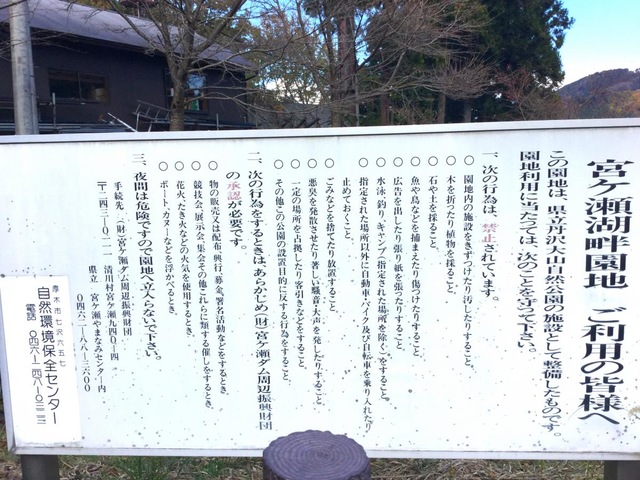 宮ケ瀬湖畔園地 ご利用の皆様へ
この園地は、県立丹沢大山自然公園の施設として整備したものです。
園地利用に当たっては、次のことを守って下さい。
一、次の行為は、禁止されています。
○ 園地内の施設をきずつけたり汚したりすること。
○ 木を折ったり植物を採ること。
○ 石や土を採ること。
○ 魚や鳥などを捕まえたり傷つけたりすること。
○ 広告を出したり張り紙を張ったりすること。
○ 水泳、釣り、キャンプ(指定された場所を除く)をすること。
○ 指定された場所以外に自動車・バイク及び自転車を乗り入れたり
止めておくこと。
○ ごみなどを捨てたり放置すること。
○ 悪臭を発散させたり著しい騒音・大声を発したりすること。
○ 一定の場所を占拠したり客引きなどをすること。
○ その他この公園の設置目的に反する行為をすること。
二、次の行為をするときは、あらかじめ(財)宮ケ瀬ダム周辺振興財団
の承認が必要です。
○ 物の販売又は配布・興行、募金、署名活動などをするとき。
○ 競技会、展示会、集会その他これらに類する催しをするとき。
○ 花火、たき火などの火気を使用するとき。
○ ボート、カヌーなどを浮かべるとき。
三、夜間は危険ですので園地へ立入らないで下さい。
手続先 (財)宮ケ瀬ダム周辺振興財団
〒二四三-〇一一一 清川村宮ケ瀬九四〇-四
県立 宮ケ瀬やまなみセンター内
〇四六-二八八-三六〇〇
厚木市七沢六五七
自然環境保全センター
電話 〇四六-二四八-〇三二三